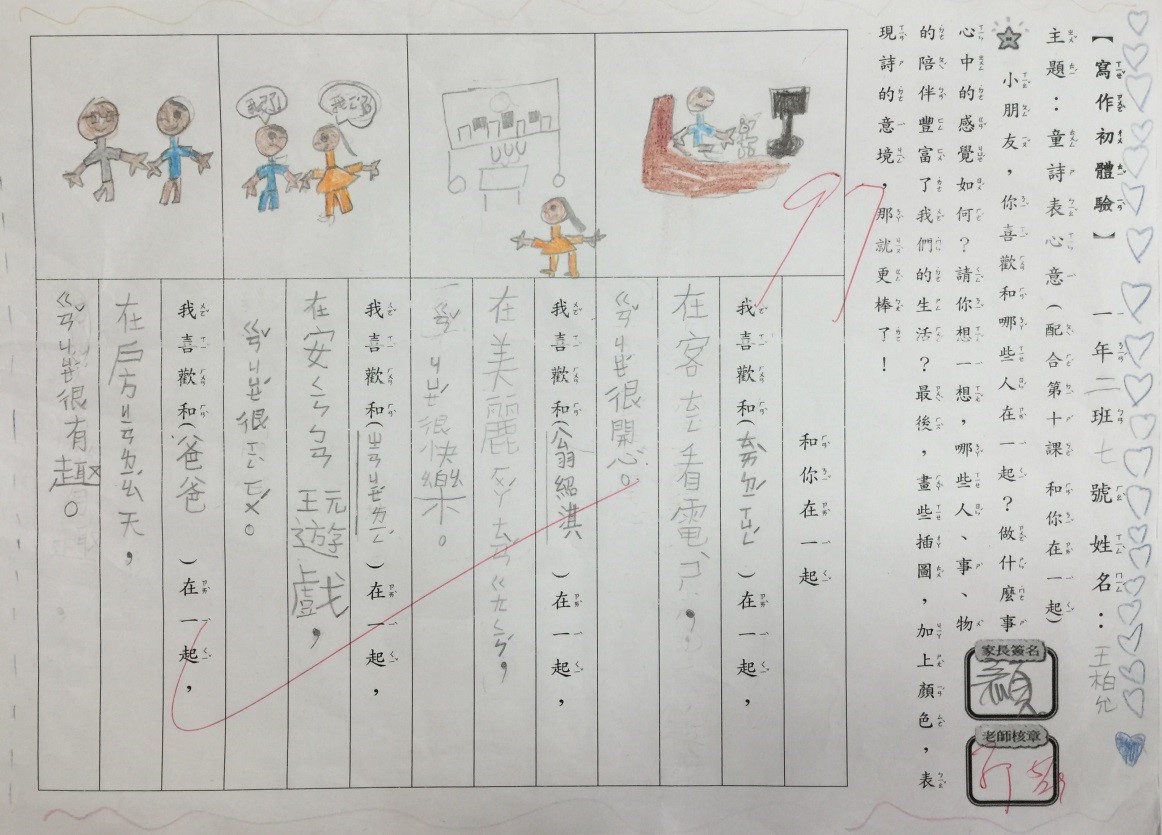 【寫作初體驗】 一年二班七號姓名：王柏允
主題：童詩表心意(配合第十課 和你在一起)
小朋友，你喜歡和哪些人在一起？做什麼事
心中的感覺如何？請你想一想，哪些人、事、物
的陪伴豐富了我們的生活？最後，畫些插圖，加上顏色，表
現詩的意境，那就更棒了！
家長簽名
顏
老師核章
97
和你在一起
我喜歡和( )在一起，
在客 看電ㄕˋ，
ㄍㄢˇㄐㄩㄝˊ很開心。
我喜歡和(翁紹淇)在一起，
在美麗
ㄍㄢˇㄐㄩㄝˊ很快樂。
我喜歡和( )在一起，
在安 玩遊戲，
ㄍㄢˇㄐㄩㄝˊ很ㄒㄧㄥˋㄈㄨˊ。
我喜歡和(爸爸)在一起，
在房ㄐㄧㄢㄌㄧㄠˊ天，
ㄍㄢˇㄐㄩㄝˊ很有趣。